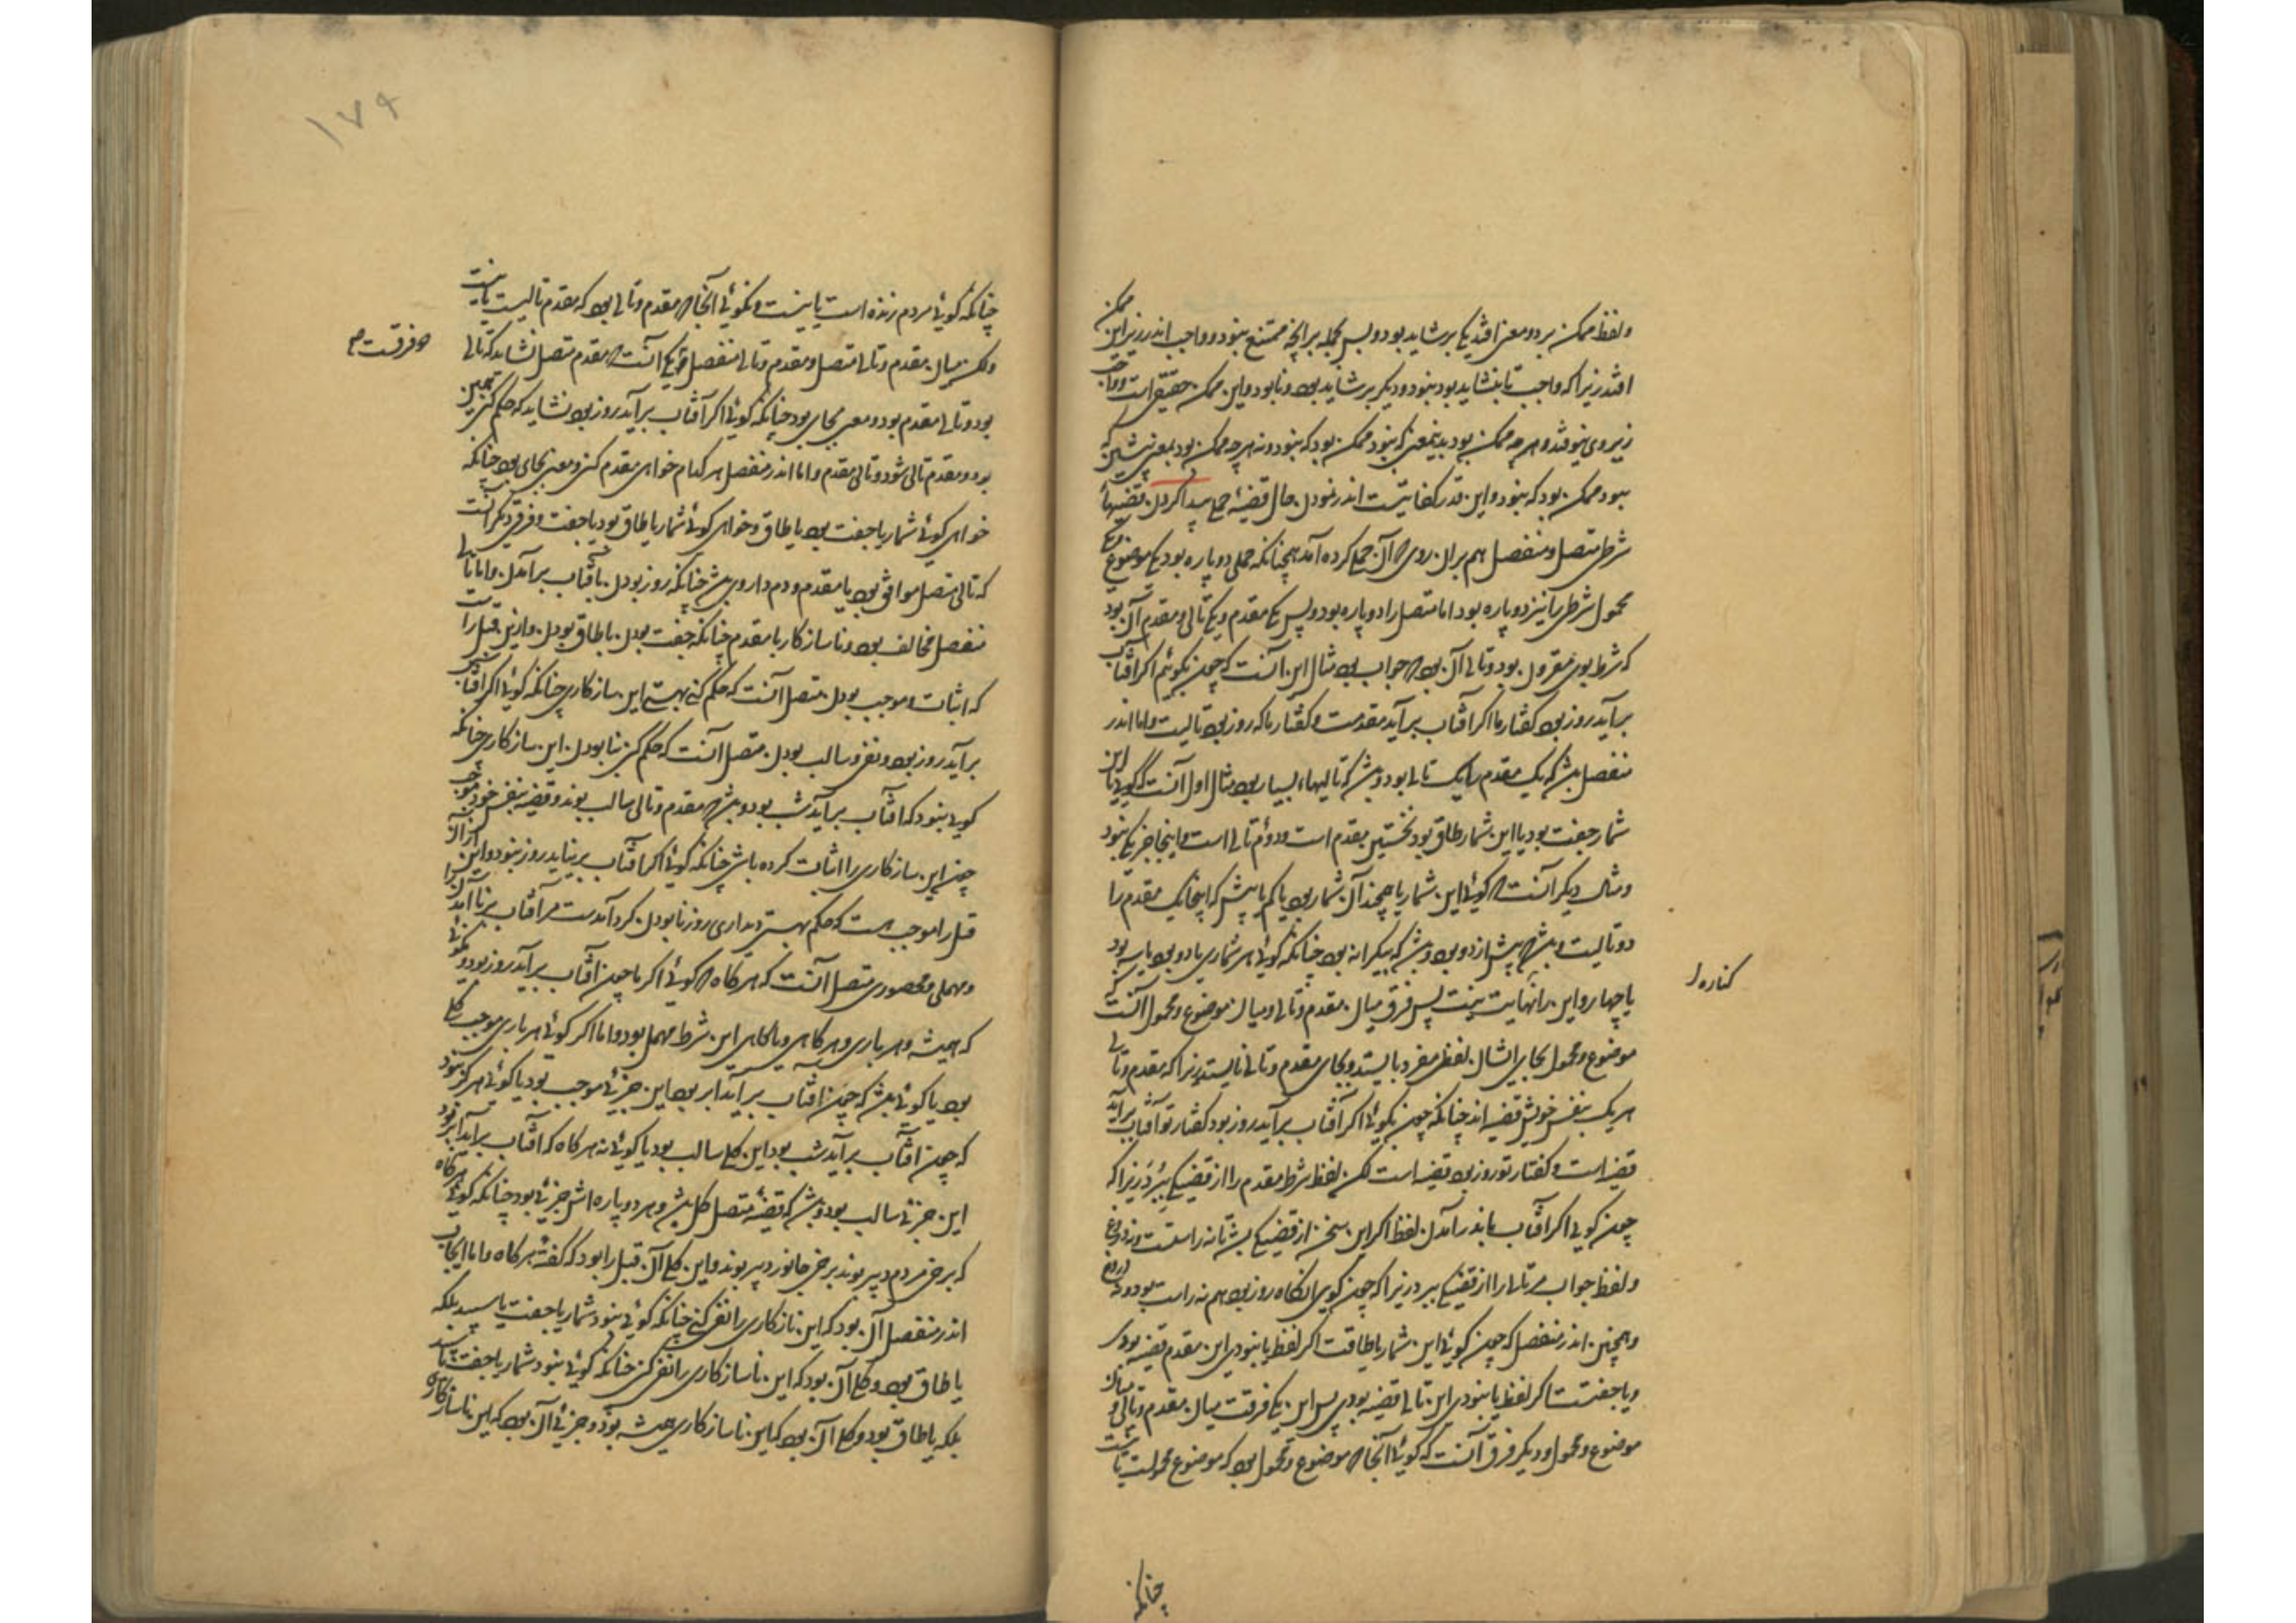 ولفظ ممکن بر دو معنی افتد یکی بر شاید بود و بس بجمله بر آنچه ممتنع نبود و واجب اندر زیر این ممکن
افتد زیرا که واجب تا بنشاید بود نبود و دیگر بر شاید بود و نابود و این ممکن حقیقی است و واجب
زیر وی نیوفتد و هر چه ممکن بود بدین معنی که بنود ممکن بود که نبود و نه هر چه ممکن بود بمعنی پیشین که
بود ممکن بود که نبود و این قدر کفایتست اندر نمودن حال قضیهٔ حملی پیدا کردن قضیهای
شرطی متصل و منفصل هم بران روی که آن حملی کرده آمد همچنانکه حملی دو پاره بود یکی موضوع و یکی
محمول شرطی را نیز دو پاره بود اما متصل را دو پاره بود و پس یکی مقدم و یکی تالی و مقدم آن بود
که شرط بوی مقرون بود و تالی آن بود که جواب بود مثال این آنست که چون بگوئیم اگر آفتاب
برآید روز بود گفتار ما اگر آفتاب برآید مقدمست و گفتار ما که روز بود تالیست و اما اندر
منفصل بشد که یک مقدم را یک تالی بود و بشد که تالیها بسیار بود مثال اول آنست که گویی یا این
شمار جفت بود یا این شمار طاق بود نخستین مقدم است و دوم تالی است و اینجا جز یکی نبود
و مثال دیگر آنست که گوئی این شمار یا همچند آن شمار بود یا کم یا بیش که اینجا یک مقدم را
دو تالیست و بشد که بیش از دو بود و بشد که بیکرانه بود چنانکه گوئی هر شماری یا دو بود یا سه بود
کناره را
یا چهار و این را نهایت نیست پس فرق میان مقدم و تالی و میان موضوع و محمول آنست که
موضوع و محمول بجای ایشان لفظی مفرد بایستد و بجای مقدم و تالی نایستد زیرا که مقدم و تالی
هر یک بنفس خویش قضیه اند چنانکه چون بگوئی اگر آفتاب برآید روز بود گفتار تو آفتاب برآید
قضیه است و گفتار تو روز بود قضیه است لکن لفظ شرط مقدم را از قضیگی ببرد زیرا که
چون گویی اگر آفتاب باندر آمدن لفظ اگر این سخن از قضیگی بشد تا نه راست و نه دروغ
و لفظ جواب مر تالی را از قضیگی ببرد زیرا که چون گویی آنگاه روز بود هم نه راست بود و نه دروغ
و همچنین اندر منفصل که چون گوئی این شمار یا طاقست اگر لفظ یا نبودی این مقدم قضیه بودی
و یا جفتست اگر لفظ یا نبودی این تالی قضیه بودی پس این یکی فرقست میان مقدم و تالی و میان
موضوع و محمول و دیگر فرق آنست که گوئی آنجا که موضوع و محمول بود که موضوع محمولست یا نیست
چنانکه
۱۷۹
چنانکه گوئی مردم زنده است یا نیست و نگوئی آنجا که مقدم و تالی بود که مقدم تالیست یا نیست
ولکن میان مقدم و تالی متصل و مقدم و تالی منفصل یکی آنست که مقدم متصل نشاید که تالی
دو فرقست
بود و تالی مقدم بود و معنی بجای بود چنانکه گوئی اگر آفتاب برآید روز بود نشاید که حکم کنی همچنین
بود و مقدم تالی شود و تالی مقدم و اما اندر منفصل هر کدام خواهی مقدم کنی و معنی بجای بود چنانکه
خواهی گوئی شمار یا جفت بود یا طاق و خواهی گوئی شمار یا طاق بود یا جفت و فرق دیگر آنست
که تالی متصل موافق بود با مقدم و دم دار وی بشد چنانکه روز بودن با آفتاب برآمدن و اما تالی
منفصل مخالف بود و ناسازگار با مقدم چنانکه جفت بودن با طاق بودن و ازین قبل راست
که اثبات و موجب بودن متصل آنست که حکم کنی بهستی این سازگاری چنانکه گوئی اگر آفتاب
برآید روز بود و نفی و سالب بودن متصل آنست که حکم کنی بنابودن این سازگاری چنانکه
گویی نبود که آفتاب برآید شب بود و بشد که مقدم و تالی سالب بوند و قضیه بنفس خود موجب
چون این سازگاری را اثبات کرده باشی چنانکه گوئی اگر آفتاب برنیاید روز نبود و این از آن
قبل را موجب است که حکم بهستی دم داری روز نابودن کرد آمدست مر آفتاب برناآمدن را
و مهملی و محصوری متصل آنست که هرگاه که گوئی اگر یا چون آفتاب برآید روز بود و نگوئی
که همیشه و هر باری و هرگاهی و یا گاهی این شرطی مهمل بود و اما اگر گوئی هر باری موجب کلی
بود یا گوئی بشد که چون آفتاب برآید ابر بود این جزئی موجب بود یا گوئی هرگز نبود
که چون آفتاب برآید شب بود این کلی سالب بود یا گوئی نه هرگاه که آفتاب برآید ابر بود
این جزئی سالب بود و بشد که قضیهٔ متصل کلی بشد و هر دو پاره اش جزئی بود چنانکه گوئی هرگاه
که برخی مردم دبیر بوند برخی جانور دبیر بوند و این کلی آن قبل را بود که گفته هرگاه و اما ایجاب
اندر منفصل آن بود که این ناسازگاری را نفی کنی چنانکه گوئی نبود شمار یا جفت یا سپید بلکه
یا طاق بود و کلی آن بود که این ناسازگاری را نفی کنی چنانکه گوئی نبود شمار یا جفت یا سپید
بلکه یا طاق بود و کلی آن بود که این ناسازگاری همیشه بود و جزئی آن بود که این ناسازگاری